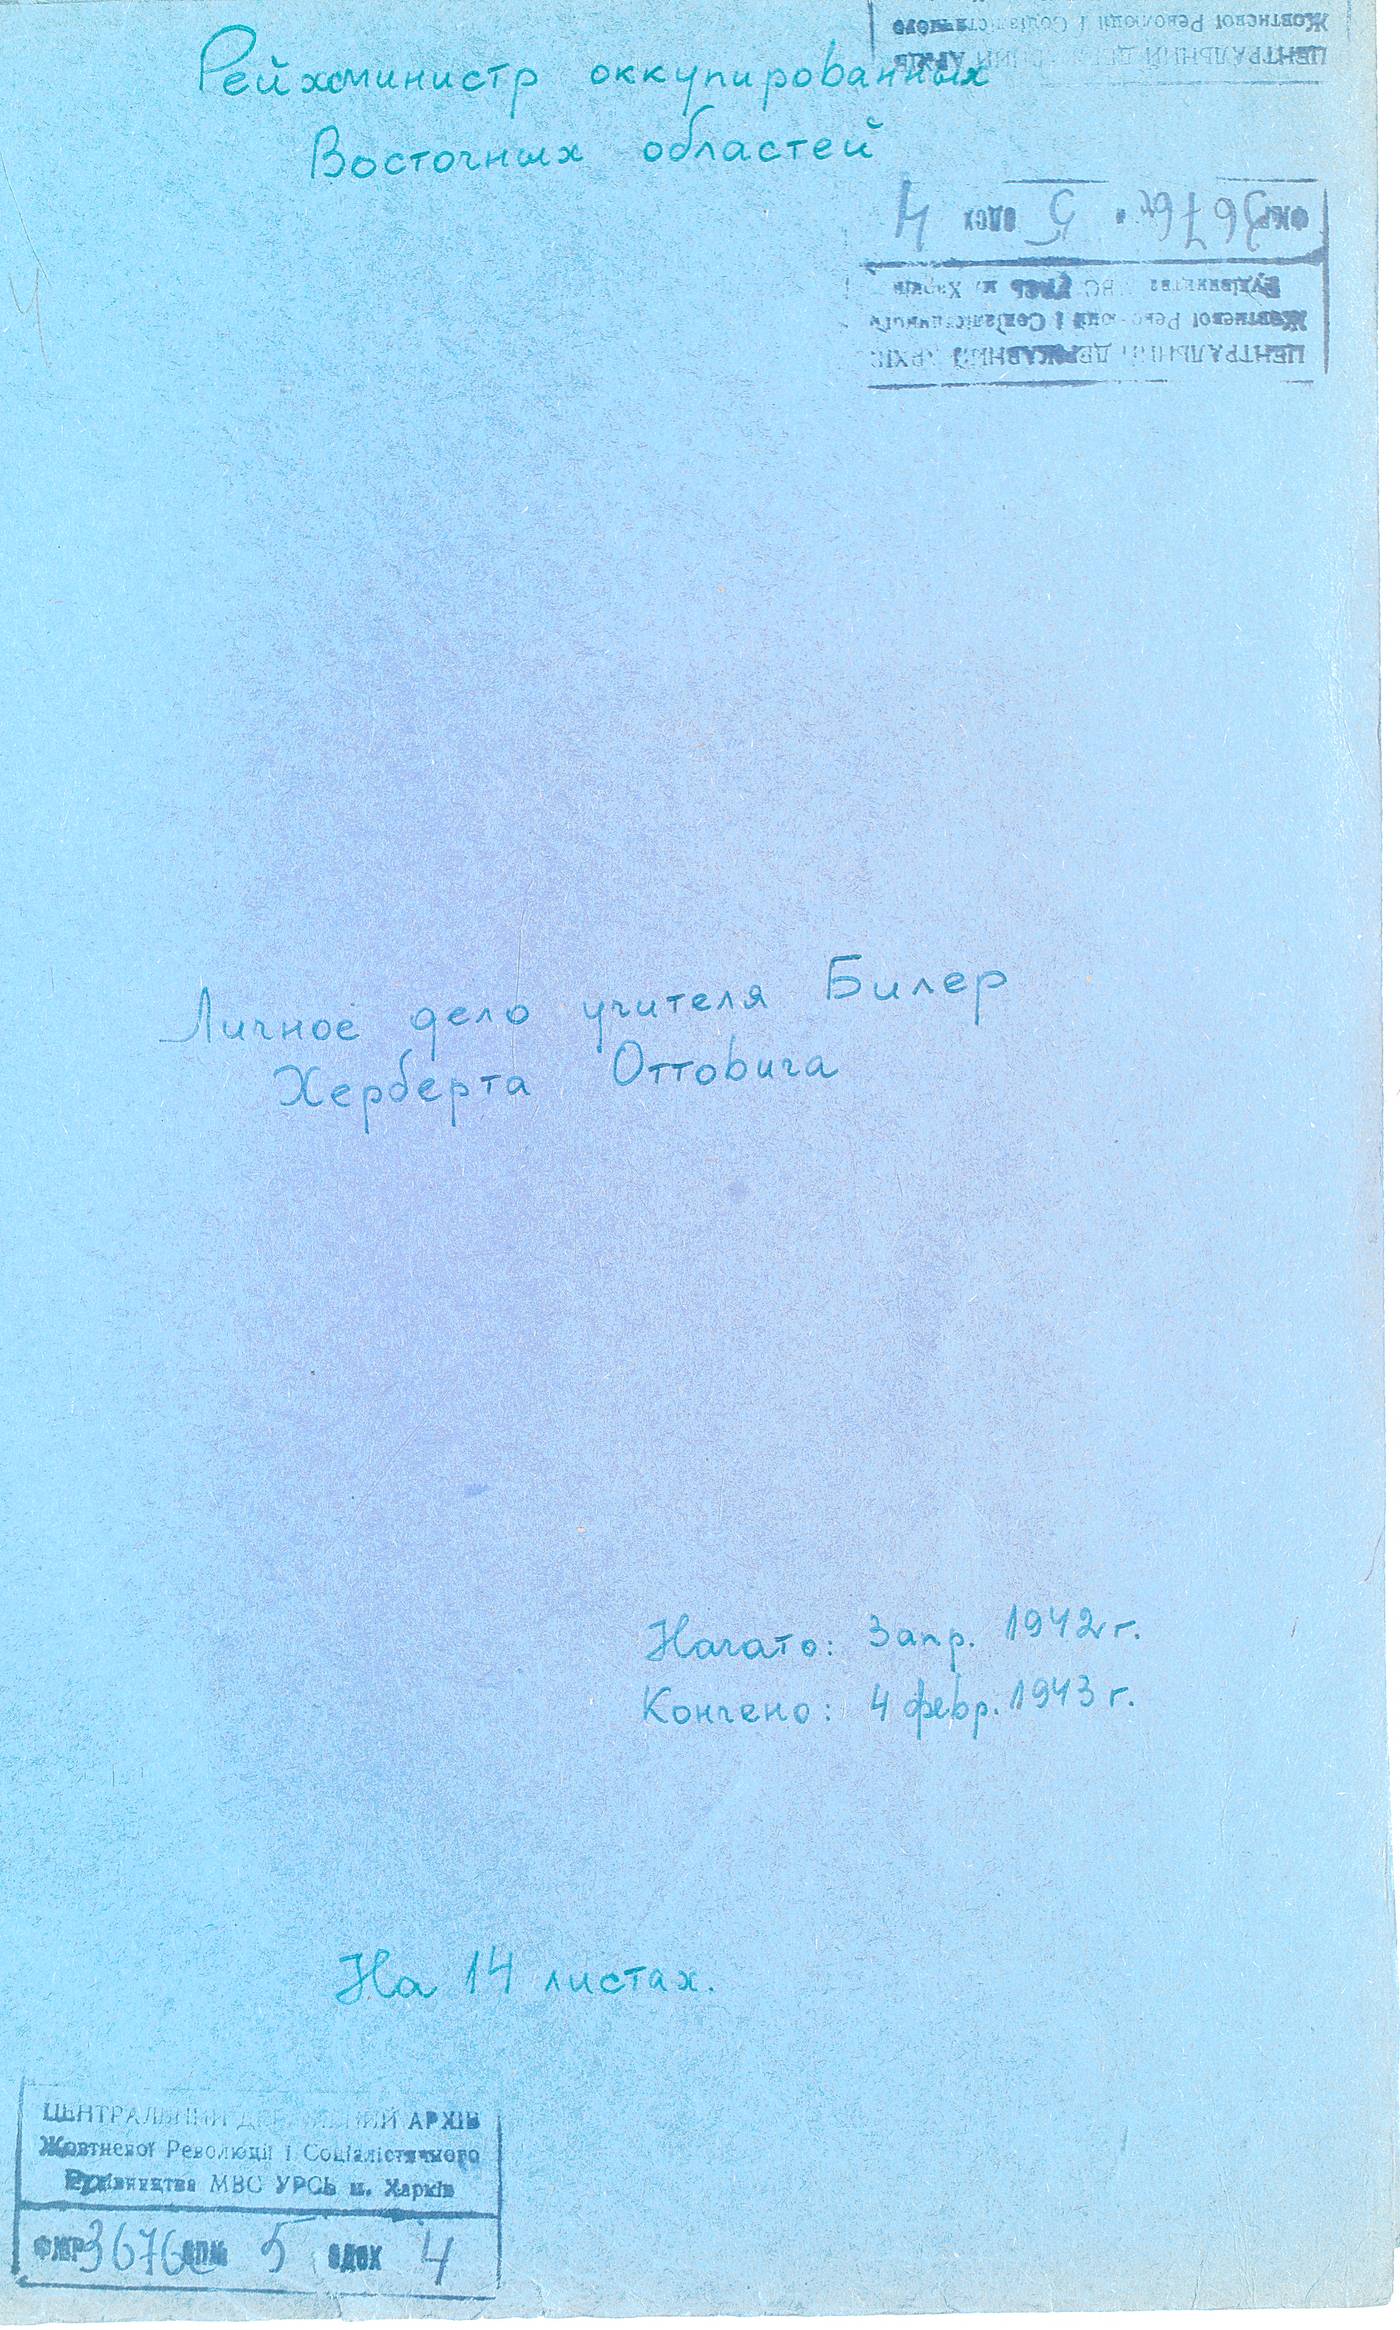 Рейхсминистр оккупированных
Восточных областей
Жовтневої Революції і Соціалістичного
ЦЕНТРАЛЬНИЙ ДЕРЖАВНИЙ АРХІВ
ЦЕНТРАЛЬНИЙ ДЕРЖАВНИЙ АРХІВ
Жовтневої Революції і Соціалістичного
Будівництва МВС УРСР м. Харків
3676 5 ОДСХ 4
Личное дело учителя Билер
Херберта Оттовича
Начато: 3 апр. 1942 г.
Кончено: 4 февр. 1943 г.
На 14 листах.
ЦЕНТРАЛЬНИЙ ДЕРЖАВНИЙ АРХІВ
Жовтневої Революції і Соціалістичного
Будівництва МВС УРСР м. Харків
3676 5 ОДСХ 4